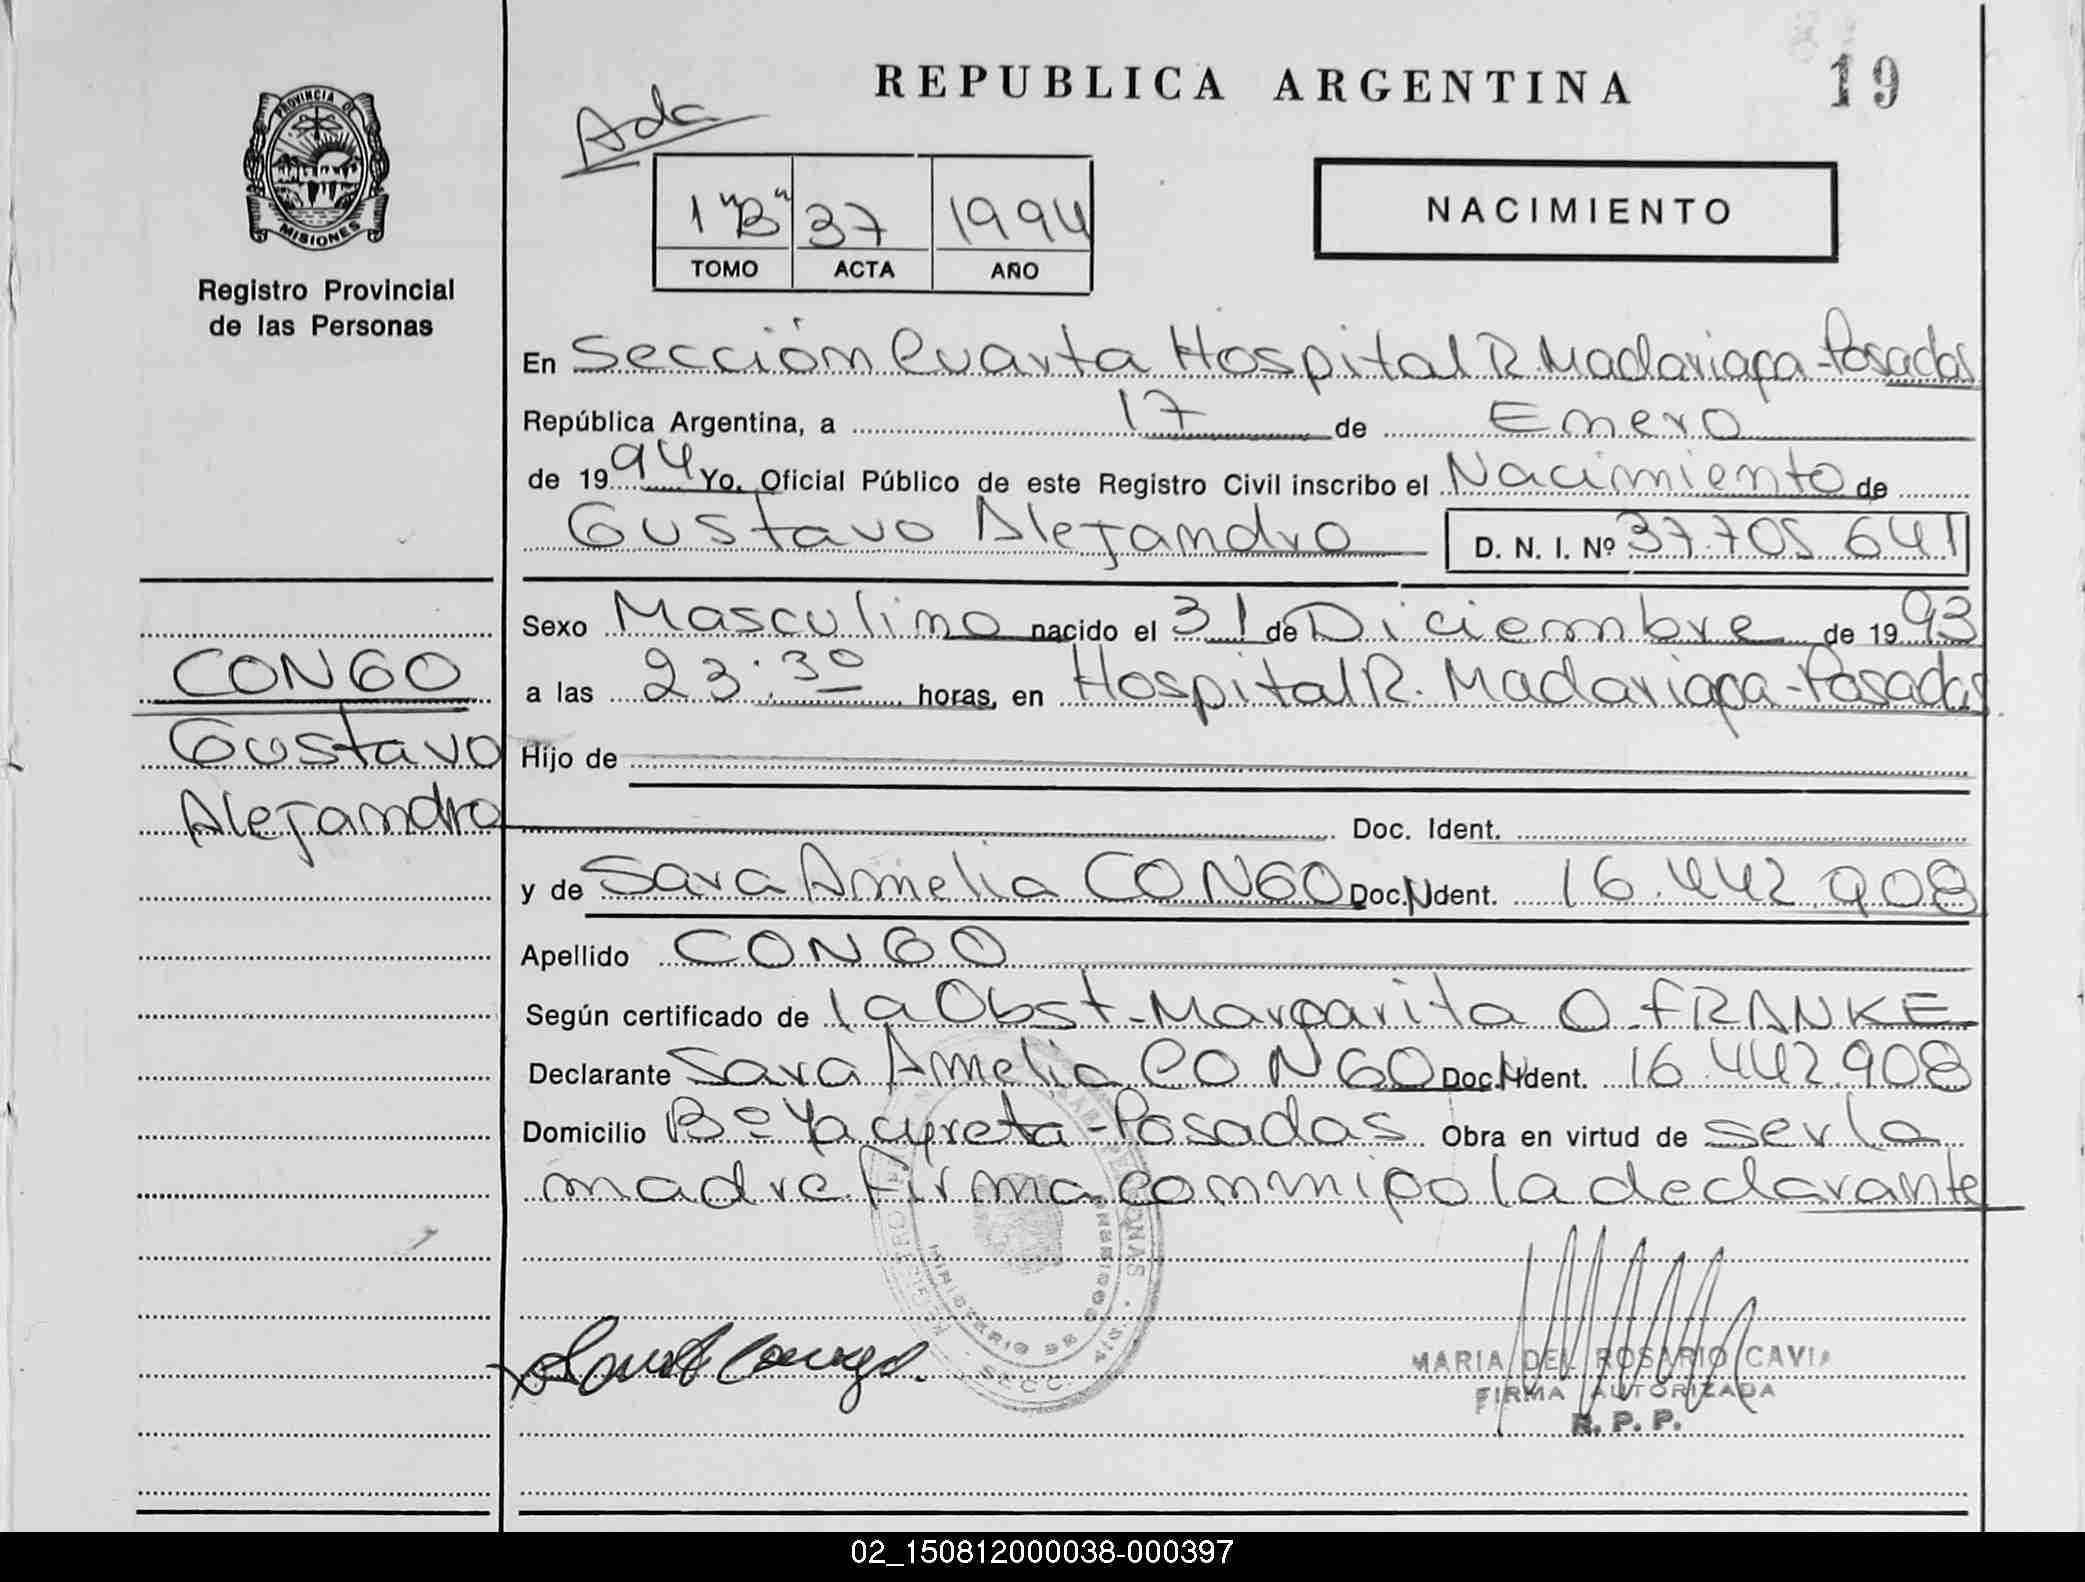 REPUBLICA ARGENTINA
19
Ada
PROVINCIA DE
MISIONES
Registro Provincial
de las Personas
1 "B" 37 1994
TOMO ACTA AÑO
NACIMIENTO
En Sección Cuarta Hospital R. Madariaga - Posadas
República Argentina, a 17 de Enero
de 1994 Yo, Oficial Público de este Registro Civil inscribo el Nacimiento de
Gustavo Alejandro D. N. I. Nº 37.705 641
Sexo Masculino nacido el 31 de Diciembre de 1993
a las 23:30 horas, en Hospital R. Madariaga - Posadas
Hijo de
Doc. Ident.
y de Sara Amelia CONGO Doc. N Ident. 16.442.908
Apellido CONGO
Según certificado de la Obst. Margarita O. FRANKE
Declarante Sara Amelia CONGO Doc. N Ident. 16.442.908
Domicilio Bº Yacyreta - Posadas Obra en virtud de ser la
madre. Firma conmigo la declarante
CONGO
Gustavo
Alejandro
MINISTERIO DE
SECC.
MARIA DEL ROSARIO CAVIA
FIRMA AUTORIZADA
R. P. P.
02_150812000038-000397